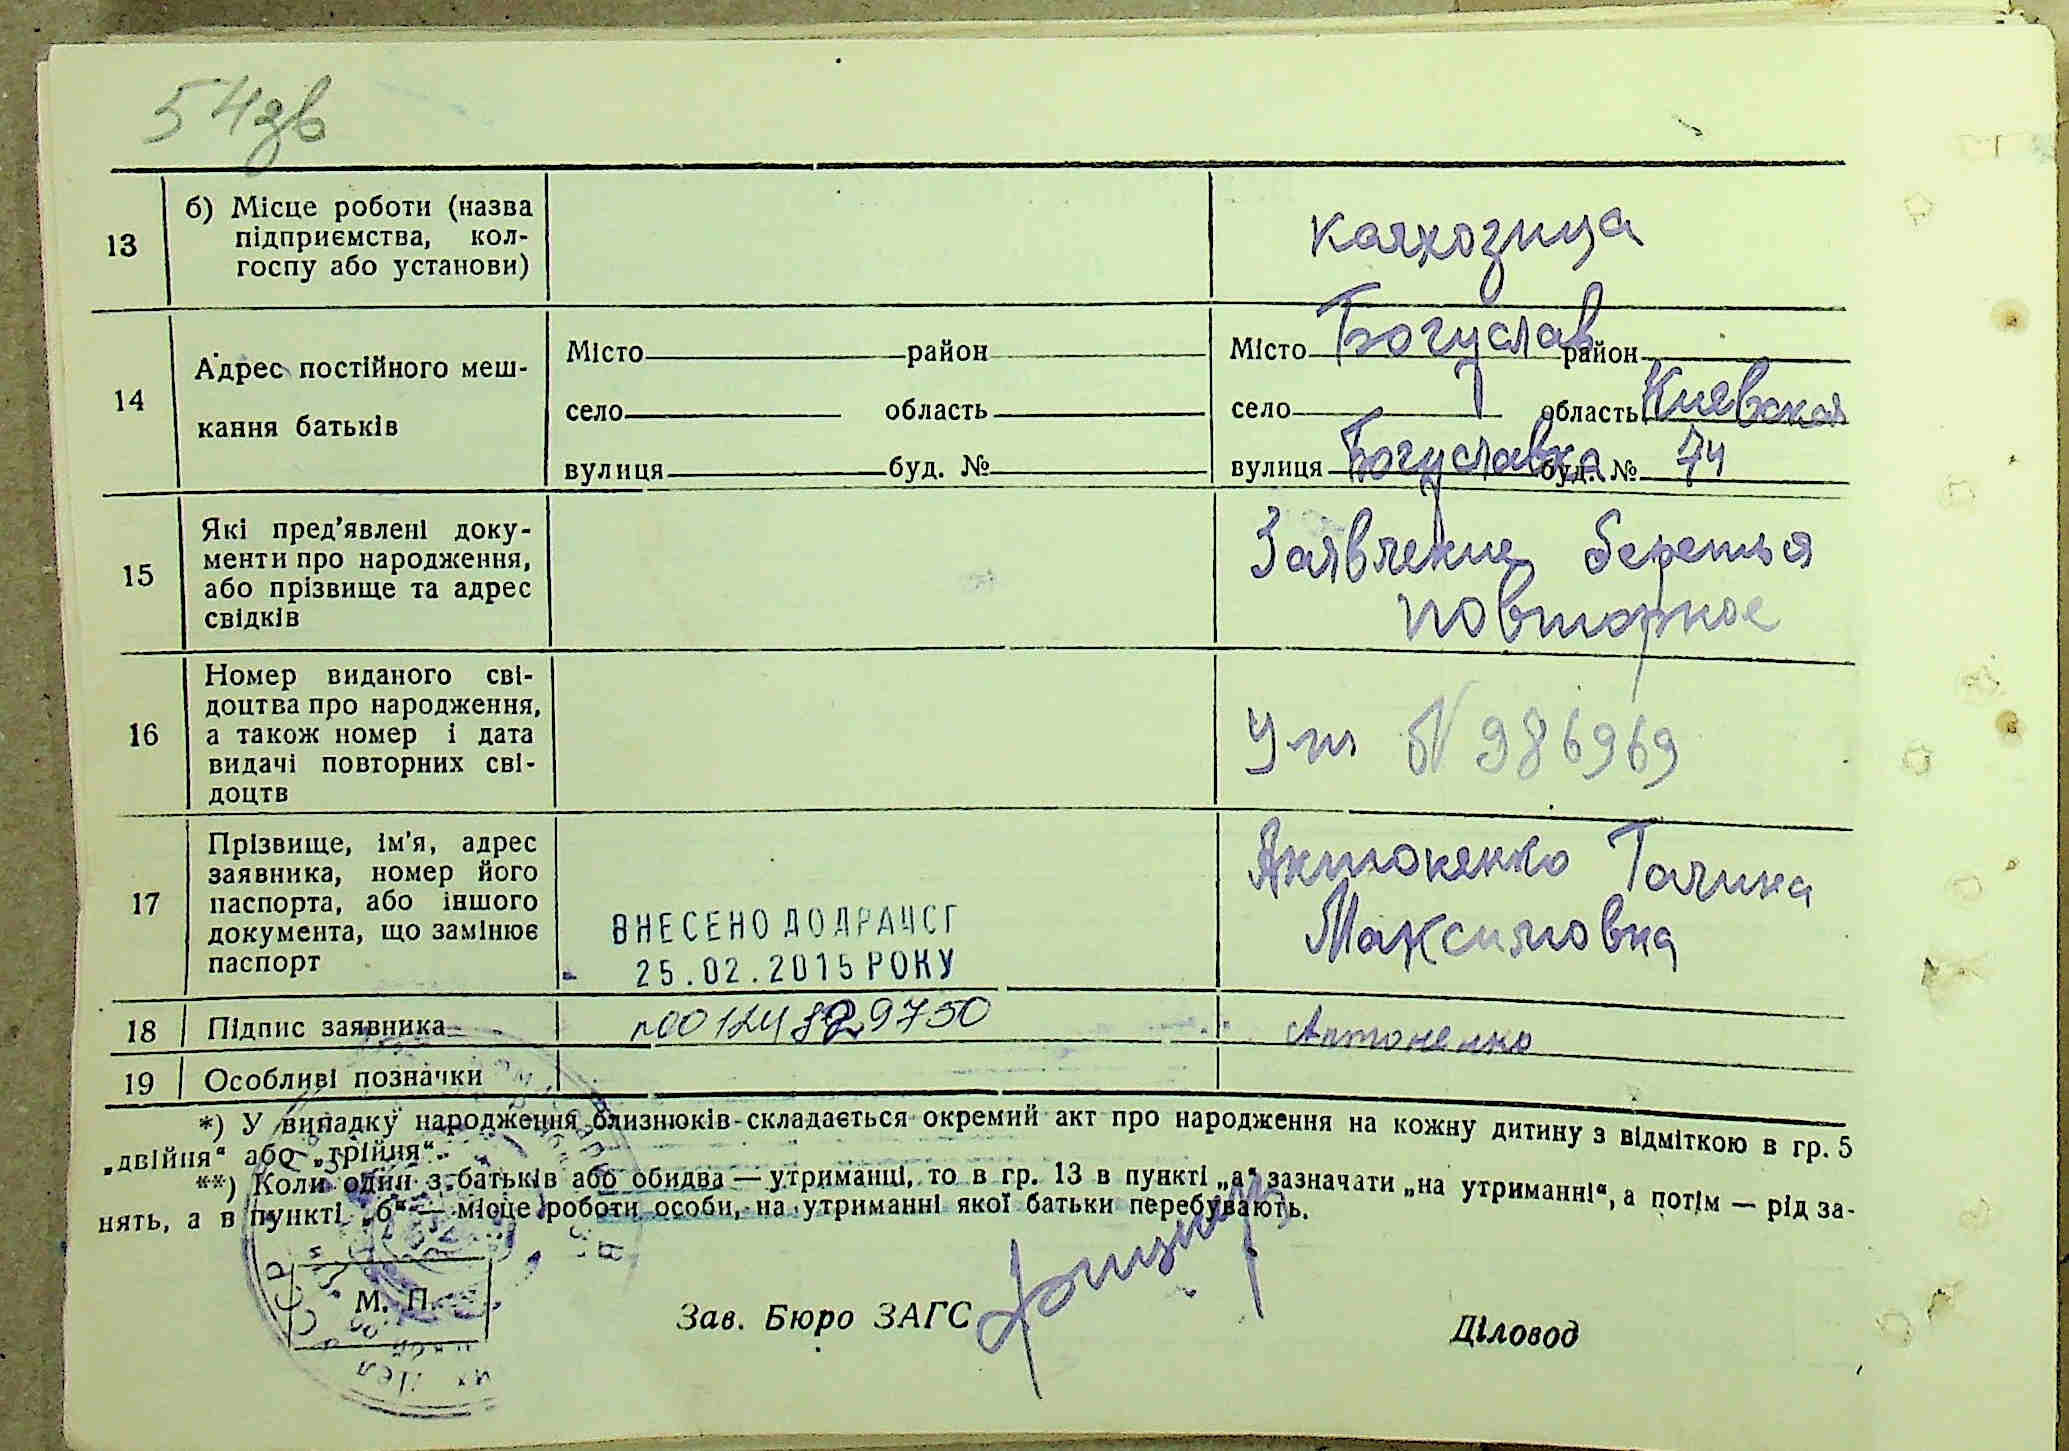 54зв
13 б) Місце роботи (назва
підприємства, кол-
госпу або установи)
колхозница
14 Адрес постійного меш-
кання батьків
Місто район
село область
вулиця буд. №
Місто Богуслав район
село область Киевская
вулиця Богуславка буд. № 74
15 Які пред'явлені доку-
менти про народження,
або прізвище та адрес
свідків
Заявление
повторное
16 Номер виданого сві-
доцтва про народження,
а також номер і дата
видачі повторних сві-
доцтв
№ 986969
17 Прізвище, ім'я, адрес
заявника, номер його
паспорта, або іншого
документа, що замінює
паспорт
ВНЕСЕНО ДО ДРАЦСГ
25.02.2015 РОКУ
Антоненко Галина
Максимовна
18 Підпис заявника
Антоненко
19 Особливі позначки
*) У випадку народження близнюків складається окремий акт про народження на кожну дитину з відміткою в гр. 5
„двійня“ або „трійня“.
**) Коли один з батьків або обидва — утриманці, то в гр. 13 в пункті „а“ зазначати „на утриманні“, а потім — рід за-
нять, а в пункті „б“ — місце роботи особи, на утриманні якої батьки перебувають.
М. П.
Зав. Бюро ЗАГС
Діловод